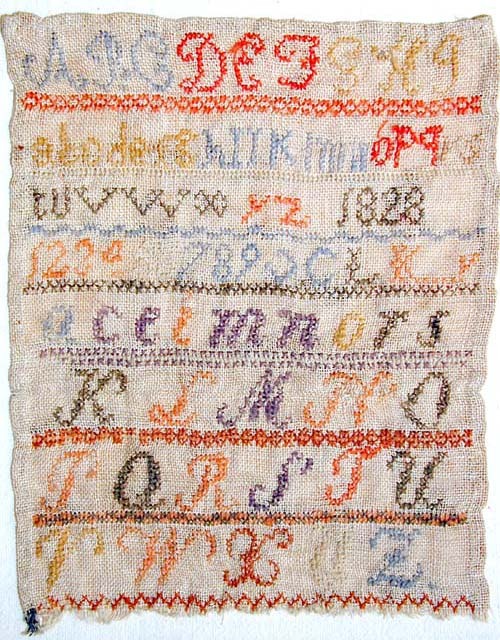 A B C D E F G H I
a b c d e f g h i j k l m n o p q r s
t u v w x y z 1828
1 2 3 4 7 8 9 0 C L K F
a c e i m n o r s
K L M N O
P Q R S T U
V W X Y Z